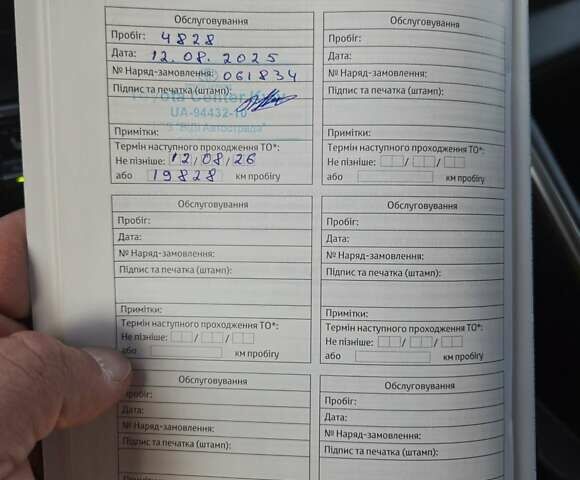 Обслуговування
Пробіг: 4828
Дата: 12.08.2025
№ Наряд-замовлення: 061834
Підпис та печатка (штамп):
Toyota Center Kyiv
UA-94432-10
З "ВІДІ Автострада"
Примітки:
Термін наступного проходження ТО*:
Не пізніше: 12/08/26
або 19828 км пробігу
Обслуговування
Пробіг:
Дата:
№ Наряд-замовлення:
Підпис та печатка (штамп):
Примітки:
Термін наступного проходження ТО*:
Не пізніше: / /
або км пробігу
Обслуговування
Пробіг:
Дата:
№ Наряд-замовлення:
Підпис та печатка (штамп):
Примітки:
Термін наступного проходження ТО*:
Не пізніше: / /
або км пробігу
Обслуговування
Пробіг:
Дата:
№ Наряд-замовлення:
Підпис та печатка (штамп):
Примітки:
Термін наступного проходження ТО*:
Не пізніше: / /
або км пробігу
Обслуговування
Пробіг:
Дата:
№ Наряд-замовлення:
Підпис та печатка (штамп):
Обслуговування
Пробіг:
Дата:
№ Наряд-замовлення:
Підпис та печатка (штамп):